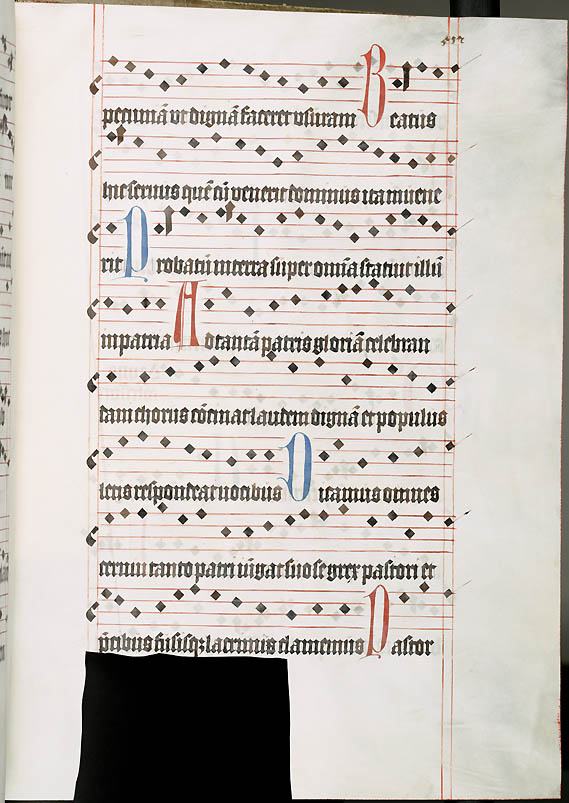 pecuniā vt dignā faceret vsuram Beatus
hic seruus quē cū venerit dominus ita inuene
rit Probatū in terra super omīa statuit illū
in patria Ad tantā patris gloriā celebran
dam chorus cōcinat laudem dignā et populus
letis respondeat uocibus Dicamus omnes
cernui tanto patri uīgat suo se grex pastori et
p̄cibus fusisqꝫ lacrimis clamemus Pastor